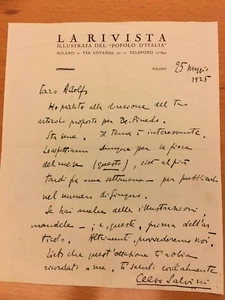 LA RIVISTA
ILLUSTRATA DEL "POPOLO D'ITALIA"
MILANO - VIA LOVANIO, - TELEFONO
MILANO 25 Maggio
1925
Caro Adolfo
Ho parlato alla direzione del tuo
articolo proposto per De Pinedo.
Sta bene. Il tema è interessante.
L'aspettiamo dunque per la fine
del mese (questo), cioè al più
tardi fra una settimana - per pubblicarlo
nel numero di Giugno.
Se hai anche delle illustrazioni
mandale - e, queste, prima dell'ar-
ticolo. Altrimenti provvederemo noi.
Lieto che quest'occasione ti abbia
ricordato a me, ti saluto cordialmente
Celso Salvini